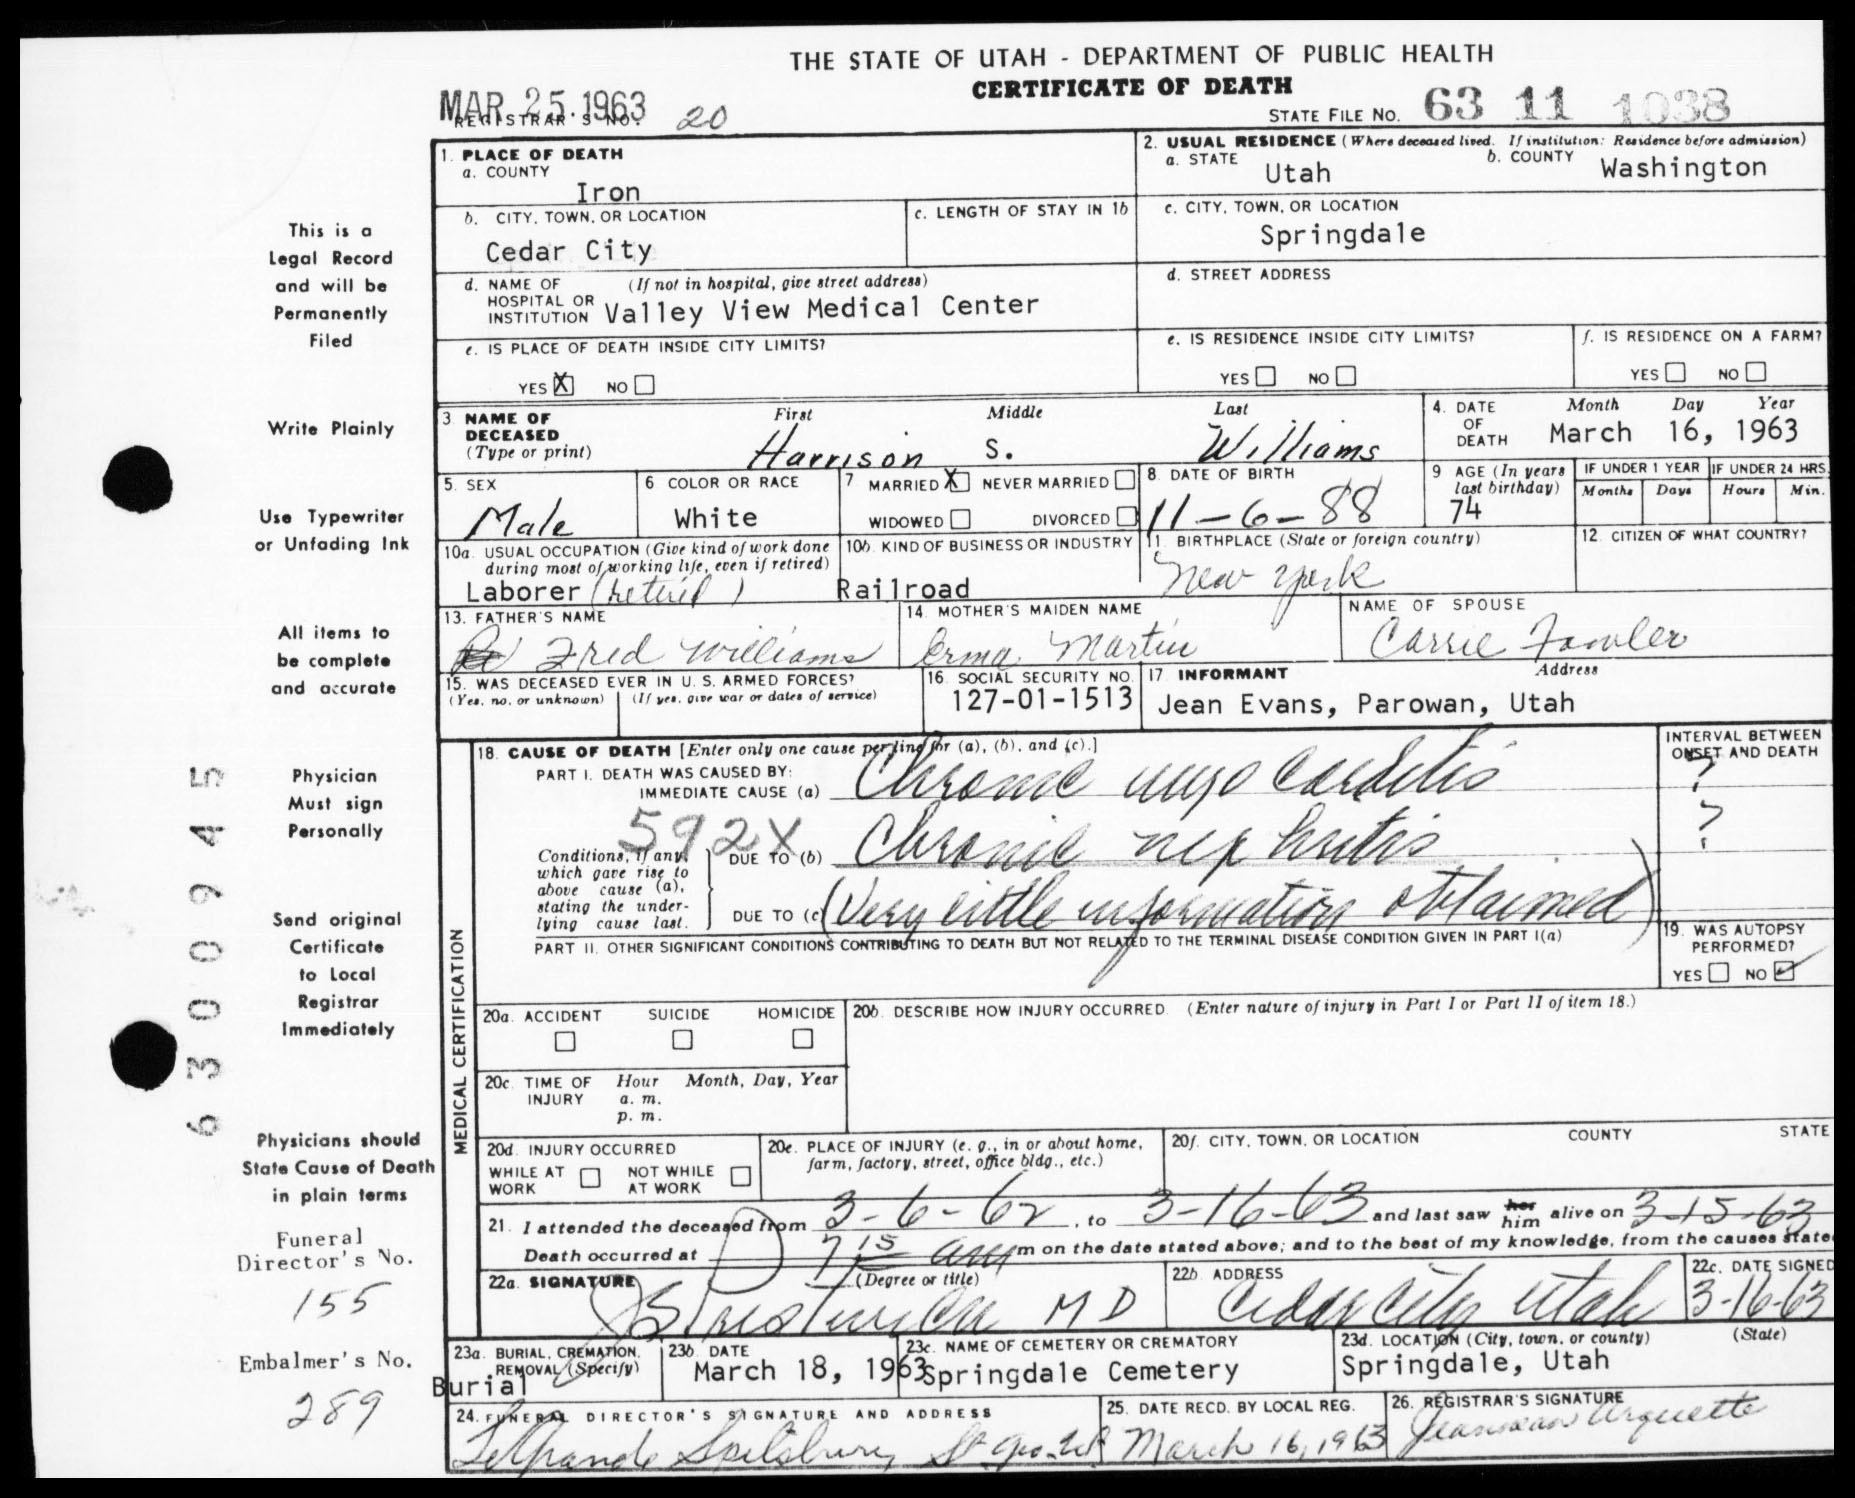 THE STATE OF UTAH - DEPARTMENT OF PUBLIC HEALTH
CERTIFICATE OF DEATH
MAR 25.1963
REGISTRAR'S NO. 20
STATE FILE NO. 63 11 1038
1. PLACE OF DEATH
a. COUNTY
Iron
2. USUAL RESIDENCE (Where deceased lived. If institution: Residence before admission)
a. STATE Utah b. COUNTY Washington
b. CITY, TOWN, OR LOCATION
Cedar City
c. LENGTH OF STAY IN 1b
c. CITY, TOWN, OR LOCATION
Springdale
d. NAME OF HOSPITAL OR INSTITUTION (If not in hospital, give street address)
Valley View Medical Center
d. STREET ADDRESS
e. IS PLACE OF DEATH INSIDE CITY LIMITS?
YES X NO
e. IS RESIDENCE INSIDE CITY LIMITS?
YES NO
f. IS RESIDENCE ON A FARM?
YES NO
3 NAME OF DECEASED (Type or print)
First Middle Last
Harrison S. Williams
4. DATE OF DEATH
Month Day Year
March 16, 1963
5. SEX
Male
6 COLOR OR RACE
White
7 MARRIED X NEVER MARRIED
WIDOWED DIVORCED
8. DATE OF BIRTH
11-6-88
9 AGE (In years last birthday)
74
IF UNDER 1 YEAR
Months Days
IF UNDER 24 HRS.
Hours Min.
10a. USUAL OCCUPATION (Give kind of work done during most of working life, even if retired)
Laborer (retired)
10b. KIND OF BUSINESS OR INDUSTRY
Railroad
11. BIRTHPLACE (State or foreign country)
New York
12. CITIZEN OF WHAT COUNTRY?
13. FATHER'S NAME
Fred Williams
14. MOTHER'S MAIDEN NAME
Erma Martin
NAME OF SPOUSE
Carrie Fowler
15. WAS DECEASED EVER IN U. S. ARMED FORCES?
(Yes, no, or unknown) (If yes, give war or dates of service)
16. SOCIAL SECURITY NO.
127-01-1513
17. INFORMANT Address
Jean Evans, Parowan, Utah
MEDICAL CERTIFICATION
18. CAUSE OF DEATH [Enter only one cause per line for (a), (b), and (c).]
PART I. DEATH WAS CAUSED BY:
IMMEDIATE CAUSE (a) Chronic myocarditis
592X
Conditions, if any, which gave rise to above cause (a), stating the underlying cause last.
DUE TO (b) Chronic nephritis
DUE TO (c) (Very little information obtained)
INTERVAL BETWEEN ONSET AND DEATH
?
?
PART II. OTHER SIGNIFICANT CONDITIONS CONTRIBUTING TO DEATH BUT NOT RELATED TO THE TERMINAL DISEASE CONDITION GIVEN IN PART I(a)
19. WAS AUTOPSY PERFORMED?
YES NO ✓
20a. ACCIDENT SUICIDE HOMICIDE
20b. DESCRIBE HOW INJURY OCCURRED. (Enter nature of injury in Part I or Part II of item 18.)
20c. TIME OF INJURY Hour Month, Day, Year
a. m.
p. m.
20d. INJURY OCCURRED
WHILE AT WORK NOT WHILE AT WORK
20e. PLACE OF INJURY (e. g., in or about home, farm, factory, street, office bldg., etc.)
20f. CITY, TOWN, OR LOCATION COUNTY STATE
21. I attended the deceased from 3-6-62, to 3-16-63 and last saw her him alive on 3-15-63
Death occurred at 7 15 am m on the date stated above; and to the best of my knowledge, from the causes stated
22a. SIGNATURE (Degree or title)
M D
22b. ADDRESS
Cedar City Utah
22c. DATE SIGNED
3-16-63
23a. BURIAL, CREMATION, REMOVAL (Specify)
Burial
23b. DATE
March 18, 1963
23c. NAME OF CEMETERY OR CREMATORY
Springdale Cemetery
23d. LOCATION (City, town, or county) (State)
Springdale, Utah
24. FUNERAL DIRECTOR'S SIGNATURE AND ADDRESS
Spilsbury St Geo. Ut
25. DATE RECD. BY LOCAL REG.
March 16, 1963
26. REGISTRAR'S SIGNATURE
Arquette
This is a
Legal Record
and will be
Permanently
Filed
Write Plainly
Use Typewriter
or Unfading Ink
All items to
be complete
and accurate
Physician
Must sign
Personally
Send original
Certificate
to Local
Registrar
Immediately
Physicians should
State Cause of Death
in plain terms
Funeral
Director's No.
155
Embalmer's No.
289
6300945